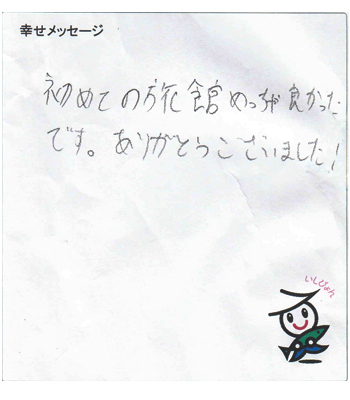 幸せメッセージ
初めての旅館めっちゃ良かった
です。ありがとうございました!
いしぴょん